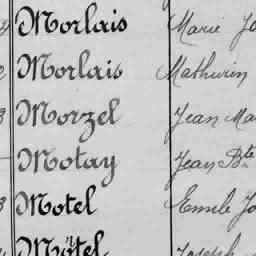 Morlais Marie
Morlais Mathurin
Morzel Jean Ma
Motay Jean Bte
Motel Emile Jo
Motel Joseph